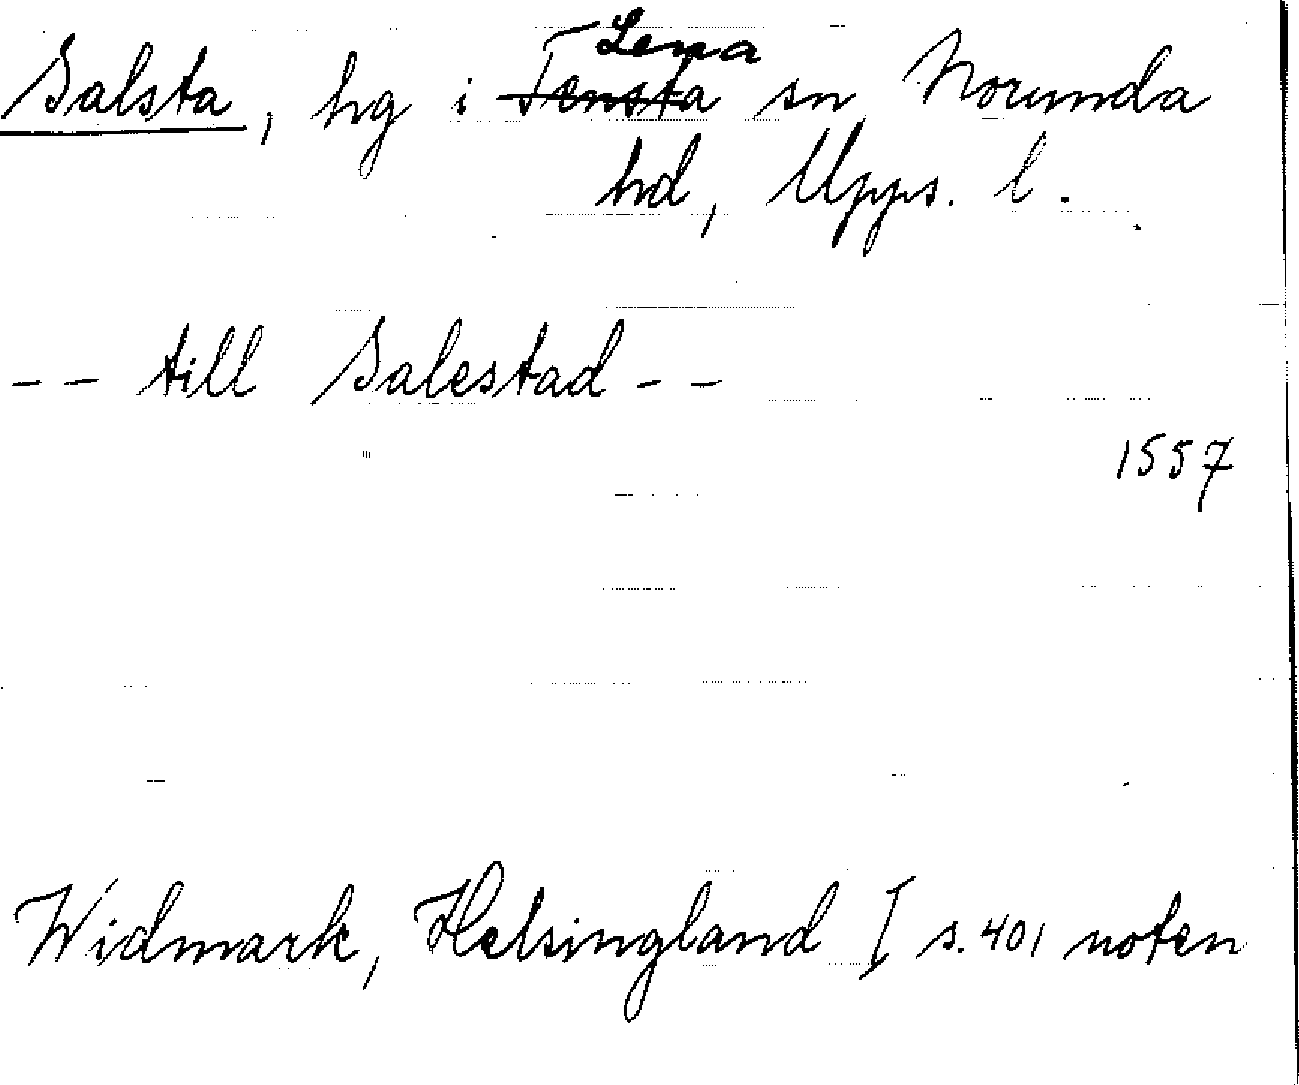 Lena
Salsta, hg i Tensta sn Norunda
hd, Upps. l.
-- till Salestad --
1557
Widmark, Helsingland I s. 401 noten